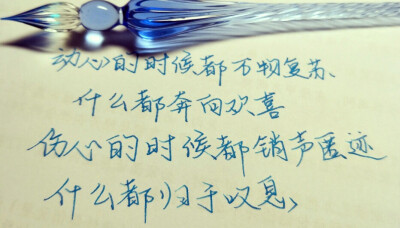 动心的时候都万物复苏、
什么都奔向欢喜
伤心的时候都销声匿迹
什么都归于叹息、